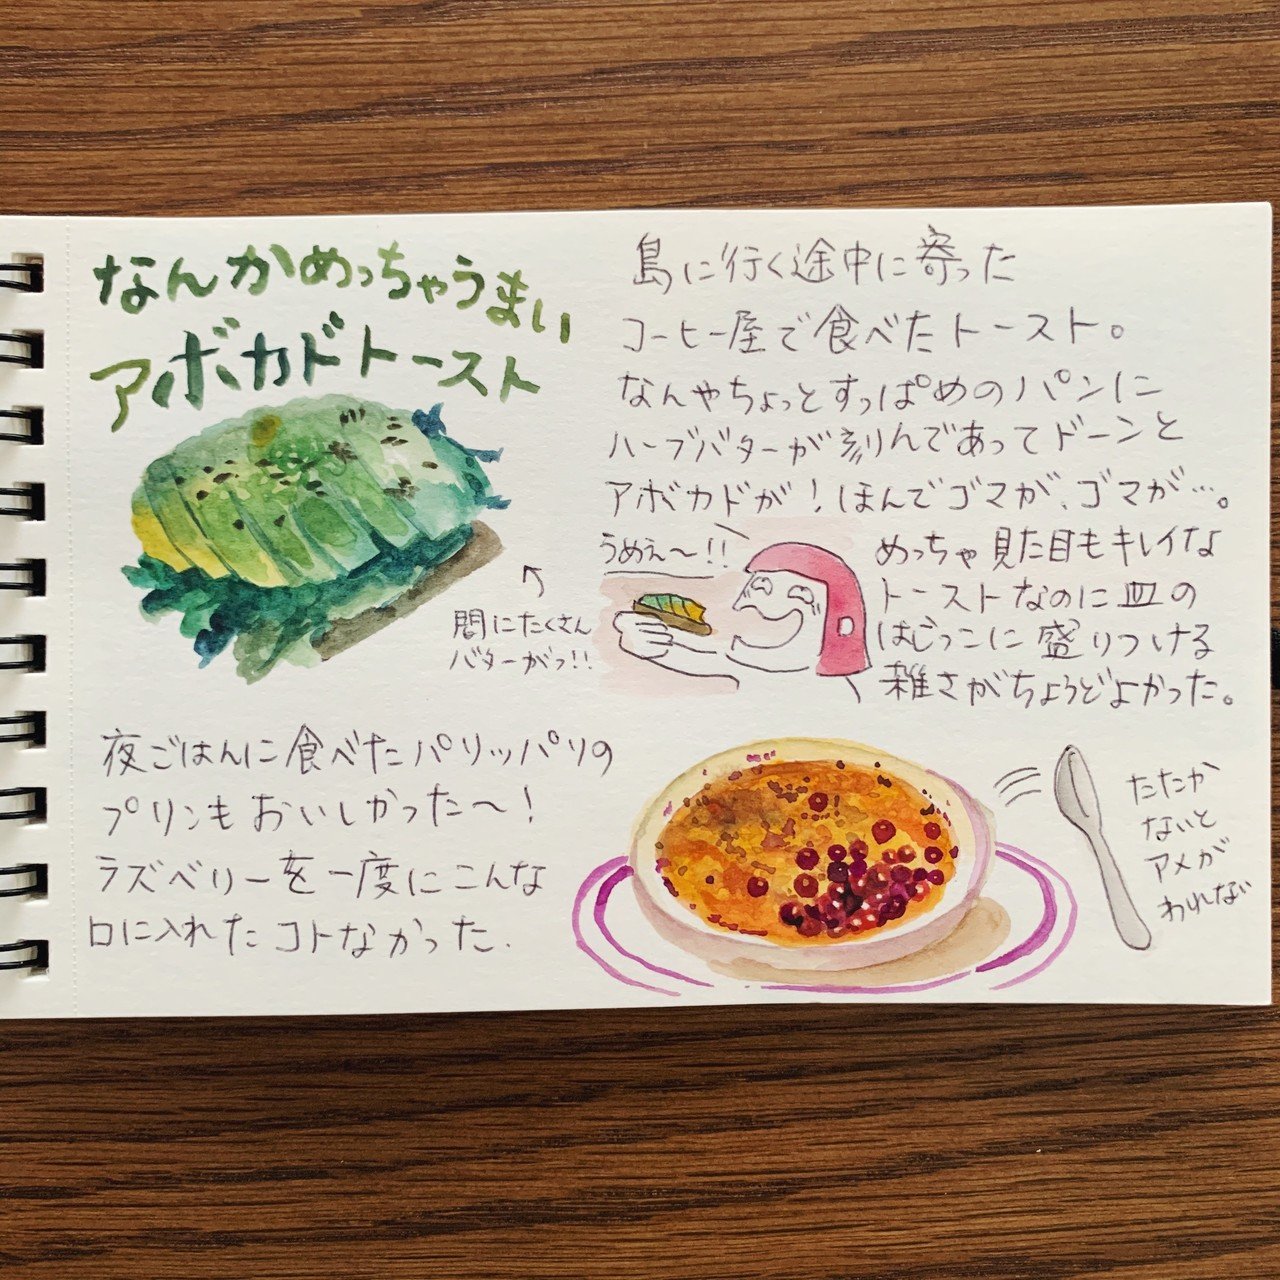 なんかめっちゃうまい
アボカドトースト
島に行く途中に寄った
コーヒー屋で食べたトースト。
なんやちょっとすっぱめのパンに
ハーブバターが刻んであってドーンと
アボカドが!ほんでゴマが、ゴマが…。
めっちゃ見た目もキレイな
トーストなのに皿の
はじっこに盛りつける
雑さがちょうどよかった。
うめぇ〜!!
間にたくさん
バターがっ!!
夜ごはんに食べたパリッパリの
プリンもおいしかった〜!
ラズベリーを一度にこんな
口に入れたコトなかった.
たたか
ないと
アメが
われない